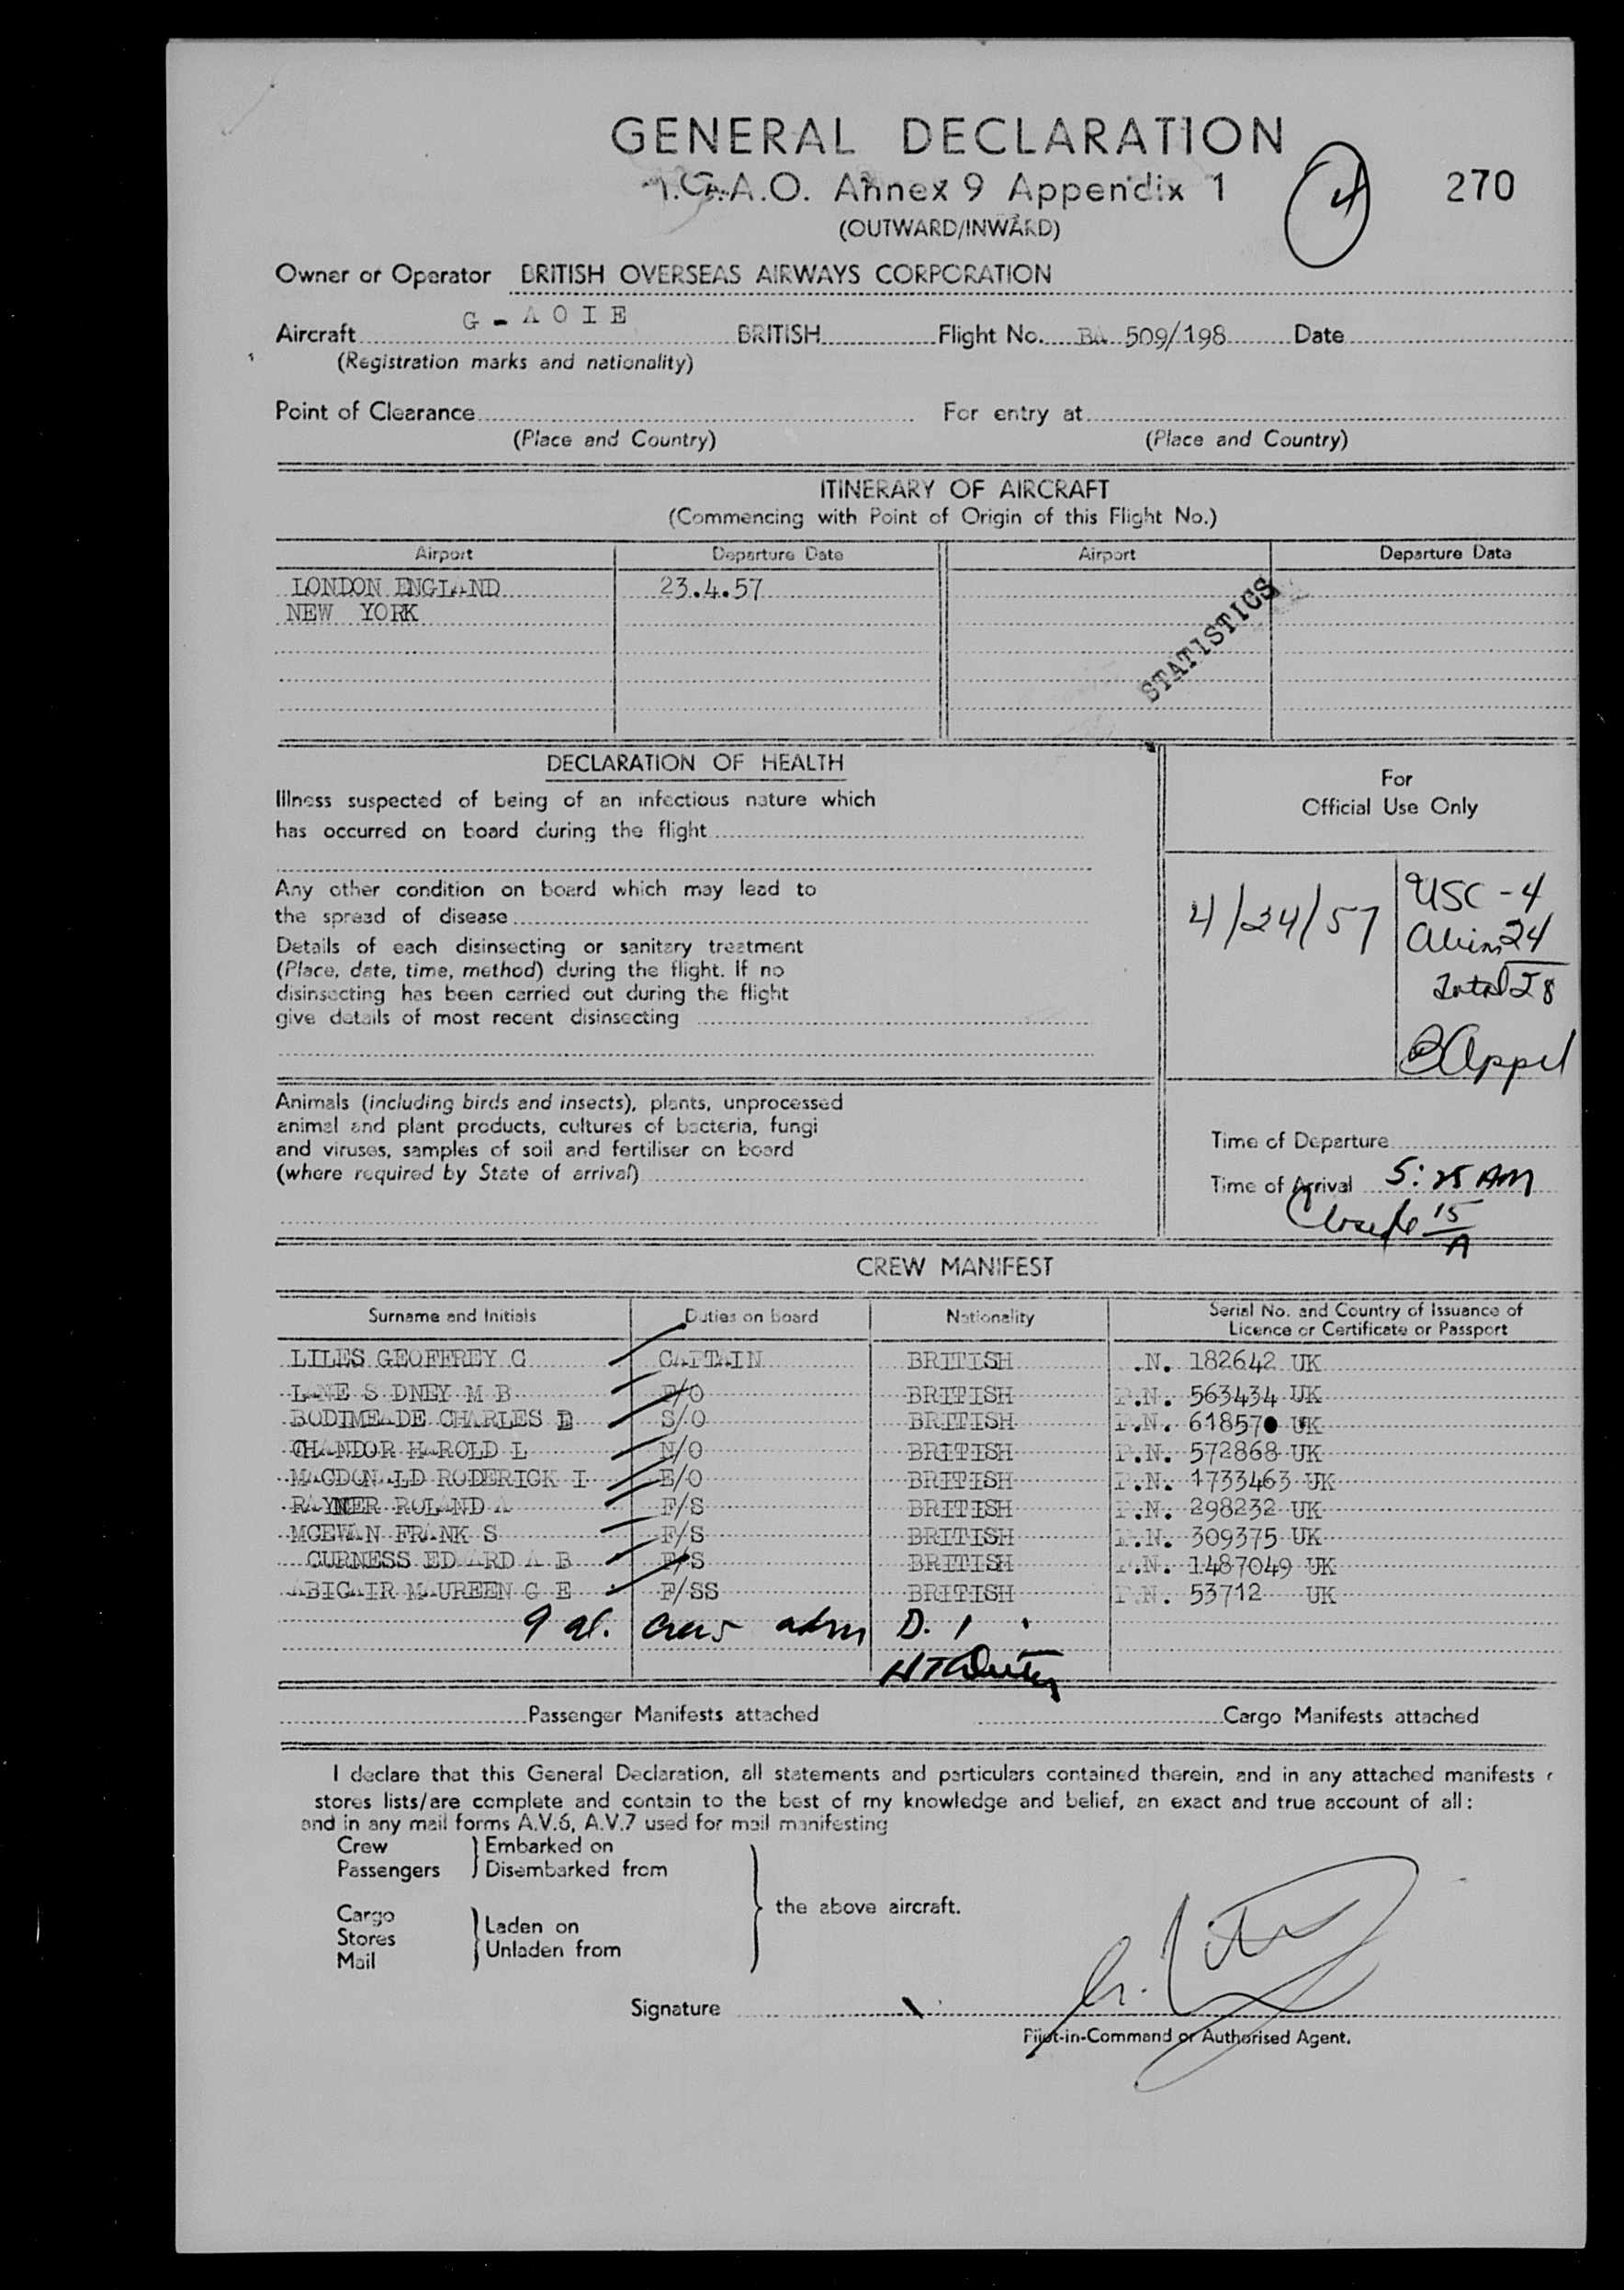 GENERAL DECLARATION
I.C.A.O. Annex 9 Appendix 1
4
270
(OUTWARD/INWARD)
Owner or Operator BRITISH OVERSEAS AIRWAYS CORPORATION
Aircraft G - A O I E BRITISH Flight No. BA 509/198 Date
(Registration marks and nationality)
Point of Clearance For entry at
(Place and Country) (Place and Country)
ITINERARY OF AIRCRAFT
(Commencing with Point of Origin of this Flight No.)
Airport Departure Date Airport Departure Date
LONDON ENGLAND 23.4.57
NEW YORK
STATISTICS
DECLARATION OF HEALTH
Illness suspected of being of an infectious nature which
has occurred on board during the flight
Any other condition on board which may lead to
the spread of disease
Details of each disinsecting or sanitary treatment
(Place, date, time, method) during the flight. If no
disinsecting has been carried out during the flight
give details of most recent disinsecting
For
Official Use Only
4/24/57
USC - 4
Aliens 24
Total 28
Appel
Animals (including birds and insects), plants, unprocessed
animal and plant products, cultures of bacteria, fungi
and viruses, samples of soil and fertiliser on board
(where required by State of arrival)
Time of Departure
Time of Arrival 5:25 AM
Closed 6 15/A
CREW MANIFEST
Surname and Initials Duties on board Nationality Serial No. and Country of Issuance of
Licence or Certificate or Passport
LILES GEOFFREY G CAPTAIN BRITISH .N. 182642 UK
LANE S DNEY M B F/O BRITISH P.N. 563434 UK
BODIMEADE CHARLES E S/O BRITISH P.N. 618570 UK
CHANDOR HAROLD L N/O BRITISH P.N. 572868 UK
MACDONALD RODERICK I E/O BRITISH P.N. 1733463 UK
RAYNER ROLAND A F/S BRITISH P.N. 298232 UK
MCEWAN FRANK S F/S BRITISH P.N. 309375 UK
CURNESS EDWARD A B F/S BRITISH P.N. 1487049 UK
ABIGAIR MAUREEN G E F/SS BRITISH P.N. 53712 UK
9 al. crew adm D. 1
Passenger Manifests attached Cargo Manifests attached
I declare that this General Declaration, all statements and particulars contained therein, and in any attached manifests
stores lists/are complete and contain to the best of my knowledge and belief, an exact and true account of all:
and in any mail forms A.V.6, A.V.7 used for mail manifesting
Crew Embarked on
Passengers Disembarked from
the above aircraft.
Cargo
Stores
Mail
Laden on
Unladen from
Signature
Pilot-in-Command or Authorised Agent.